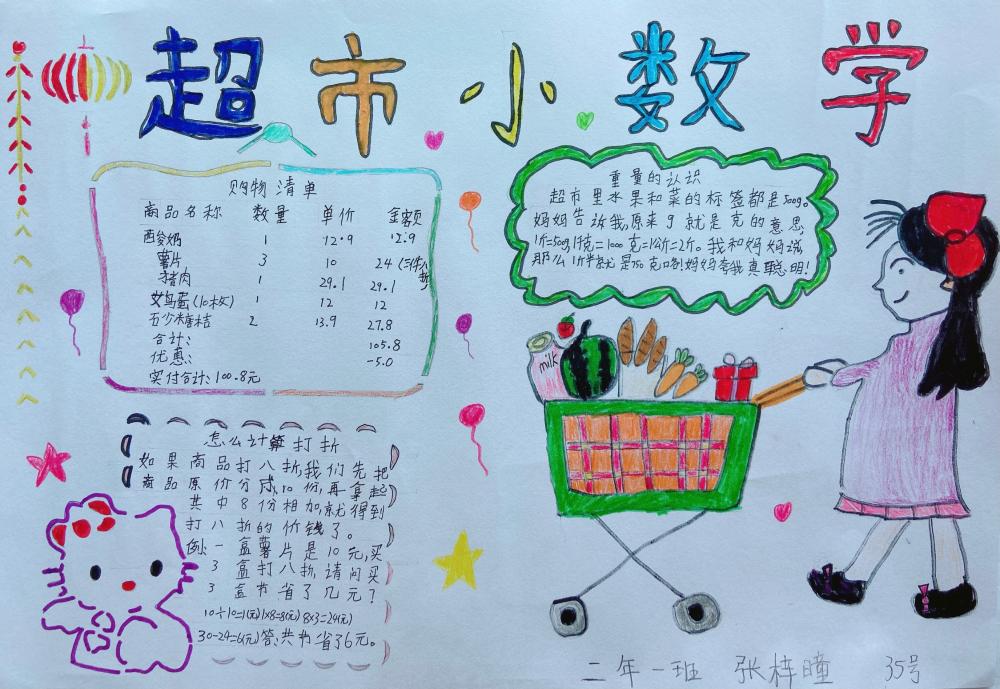 超市小数学
购物清单
商品名称 数量 单价 金额
酉俊奶 1 12.9 12.9
薯片 3 10 24 (三件八折)
猪肉 1 29.1 29.1
文鸟蛋(10枚) 1 12 12
石少米唐桔 2 13.9 27.8
合计: 105.8
优惠: -5.0
实付合计:100.8元
重量的认识
超市里水果和菜的标签都是500g。
妈妈告诉我,原来g就是克的意思,
1斤=500g,1千克=1000克=1公斤=2斤。我和妈妈说,
那么1斤半就是750克咯!妈妈夸我真聪明!
milk
怎么计算打折
如果商品打八折,我们先把
商品原价分成10份,再拿起
其中8份相加,就得到
打八折的价钱了。
例:一盒薯片是10元,买
3盒打八折,请问买
3盒节省了几元?
10÷10=1(元) 1×8=8(元) 8×3=24(元)
30-24=6(元) 答:共节省了6元。
二年一班 张梓瞳 35号